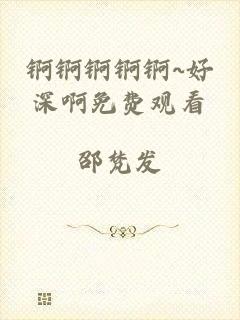 锕锕锕锕锕~好
深啊免费观看
邵梵发